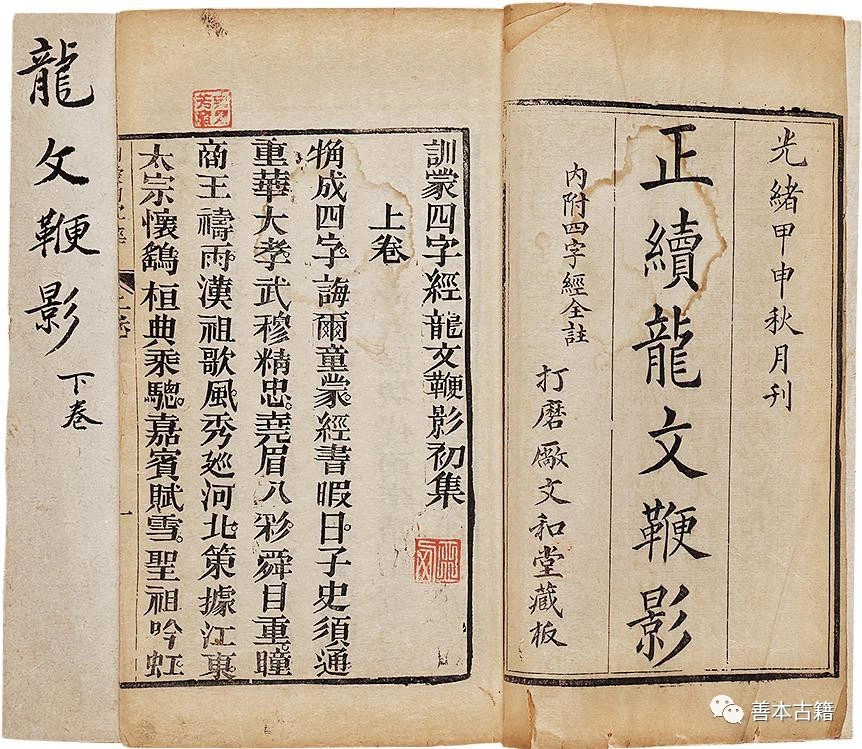 光緒甲申秋月刊
正續龍文鞭影
內附四字經全註
打磨廠文和堂藏板
訓蒙四字經龍文鞭影初集
上卷
觕成四字。誨爾童蒙。經書暇日。子史須通
重華大孝。武穆精忠。堯眉八彩。舜目重瞳
商王禱雨。漢祖歌風。秀廵河北。策據江東
太宗懷鷂。桓典乘驄。嘉賓賦雪。聖祖吟虹
龍文鞭影
下卷
善本古籍